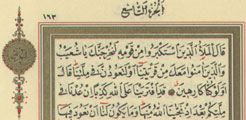 الجزء التاسع
١٦٣
قَالَ ٱلْمَلَأُ ٱلَّذِينَ ٱسْتَكْبَرُوا۟ مِن قَوْمِهِۦ لَنُخْرِجَنَّكَ يَٰشُعَيْبُ
وَٱلَّذِينَ ءَامَنُوا۟ مَعَكَ مِن قَرْيَتِنَآ أَوْ لَتَعُودُنَّ فِى مِلَّتِنَا قَالَ
أَوَلَوْ كُنَّا كَٰرِهِينَ قَدِ ٱفْتَرَيْنَا عَلَى ٱللَّهِ كَذِبًا إِنْ عُدْنَا فِى
مِلَّتِكُم بَعْدَ إِذْ نَجَّىٰنَا ٱللَّهُ مِنْهَا وَمَا يَكُونُ لَنَآ أَن نَّعُودَ فِيهَآ